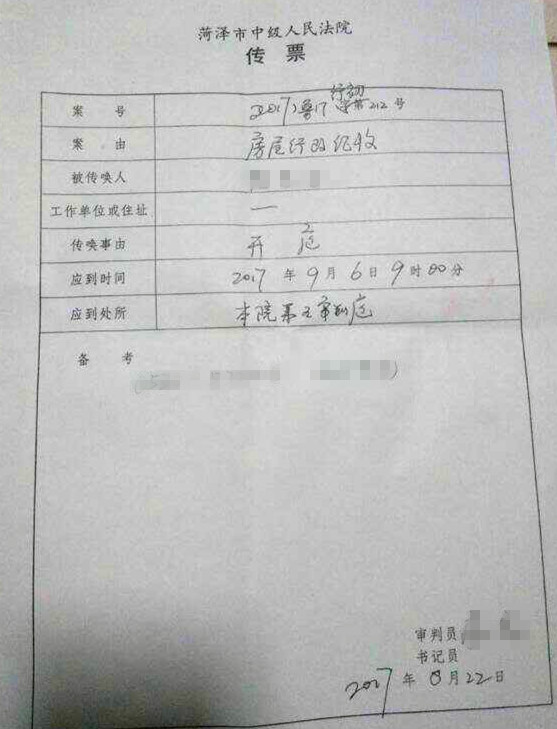 菏泽市中级人民法院
传票
案号 2017)鲁17行初字第212号
案由 房屋行政征收
被传唤人
工作单位或住址 一
传唤事由 开庭
应到时间 2017年9月6日9时00分
应到处所 本院第五审判庭
备考
审判员
书记员
2017年8月22日